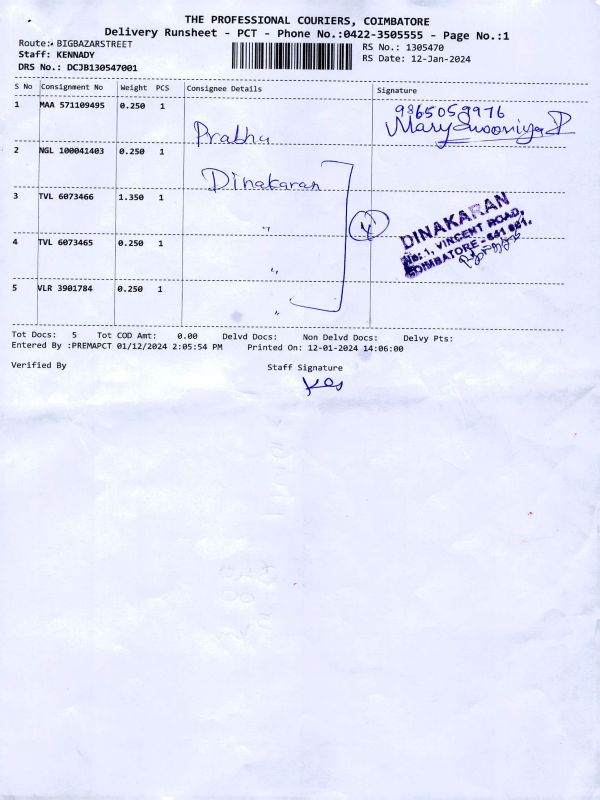 THE PROFESSIONAL COURIERS, COIMBATORE
Delivery Runsheet - PCT - Phone No.:0422-3505555 - Page No.:1
Route: BIGBAZARSTREET
RS No.: 1305470
Staff: KENNADY
RS Date: 12-Jan-2024
DRS No.: DCJB130547001
S No Consignment No Weight PCS Consignee Details Signature
1 MAA 571109495 0.250 1 Prabhu 9865059976
Mary
2 NGL 100041403 0.250 1 Dinakaran
3 TVL 6073466 1.350 1 "
4
DINAKARAN
No: 1, VINCENT ROAD,
COIMBATORE - 641 001.
4 TVL 6073465 0.250 1 "
5 VLR 3901784 0.250 1 "
Tot Docs: 5 Tot COD Amt: 0.00 Delvd Docs: Non Delvd Docs: Delvy Pts:
Entered By :PREMAPCT 01/12/2024 2:05:54 PM Printed On: 12-01-2024 14:06:00
Verified By Staff Signature